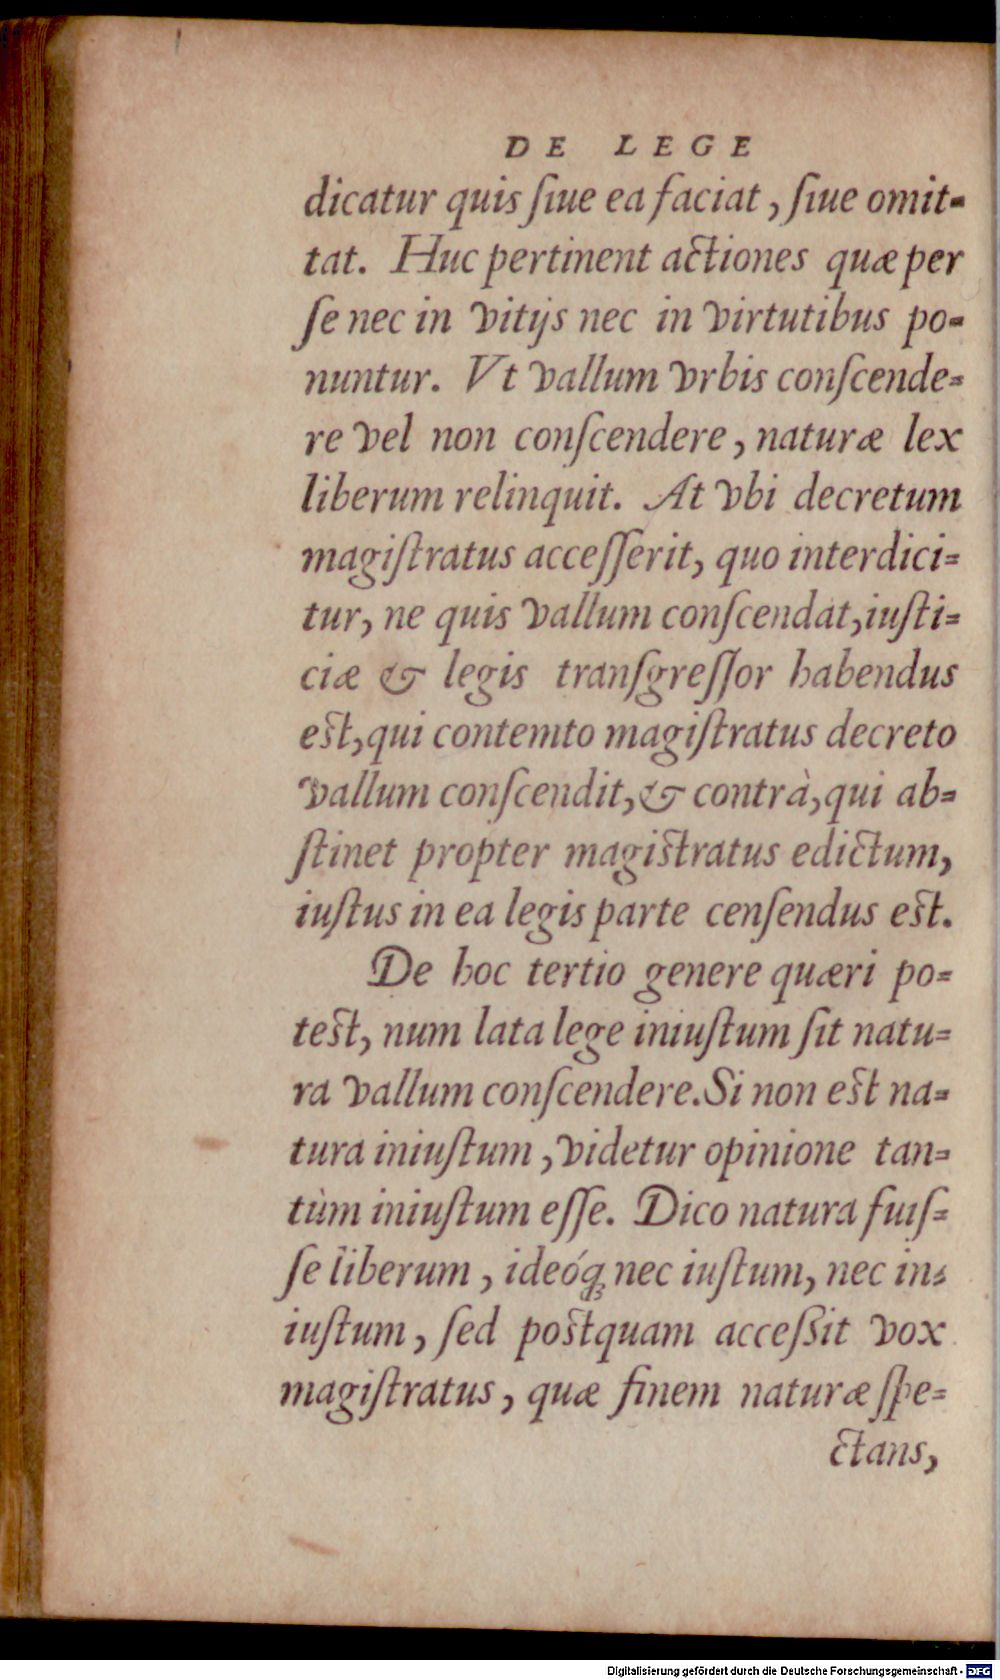 DE LEGE
dicatur quis ſiue ea faciat, ſiue omit-
tat. Huc pertinent actiones quæ per
ſe nec in vitijs nec in virtutibus po-
nuntur. Vt vallum vrbis conſcende-
re vel non conſcendere, naturæ lex
liberum relinquit. At vbi decretum
magiſtratus acceſſerit, quo interdici-
tur, ne quis vallum conſcendat, iuſti-
ciæ & legis tranſgreſſor habendus
eſt, qui contemto magiſtratus decreto
vallum conſcendit, & contrà, qui ab-
ſtinet propter magiſtratus edictum,
iuſtus in ea legis parte cenſendus eſt.
De hoc tertio genere quæri po-
teſt, num lata lege iniuſtum ſit natu-
ra vallum conſcendere. Si non eſt na-
tura iniuſtum, videtur opinione tan-
tùm iniuſtum eſſe. Dico natura fuiſ-
ſe liberum, ideóq́; nec iuſtum, nec in-
iuſtum, ſed poſtquam acceſsit vox
magiſtratus, quæ finem naturæ ſpe-
ctans,
Digitalisierung gefördert durch die Deutsche Forschungsgemeinschaft - DFG